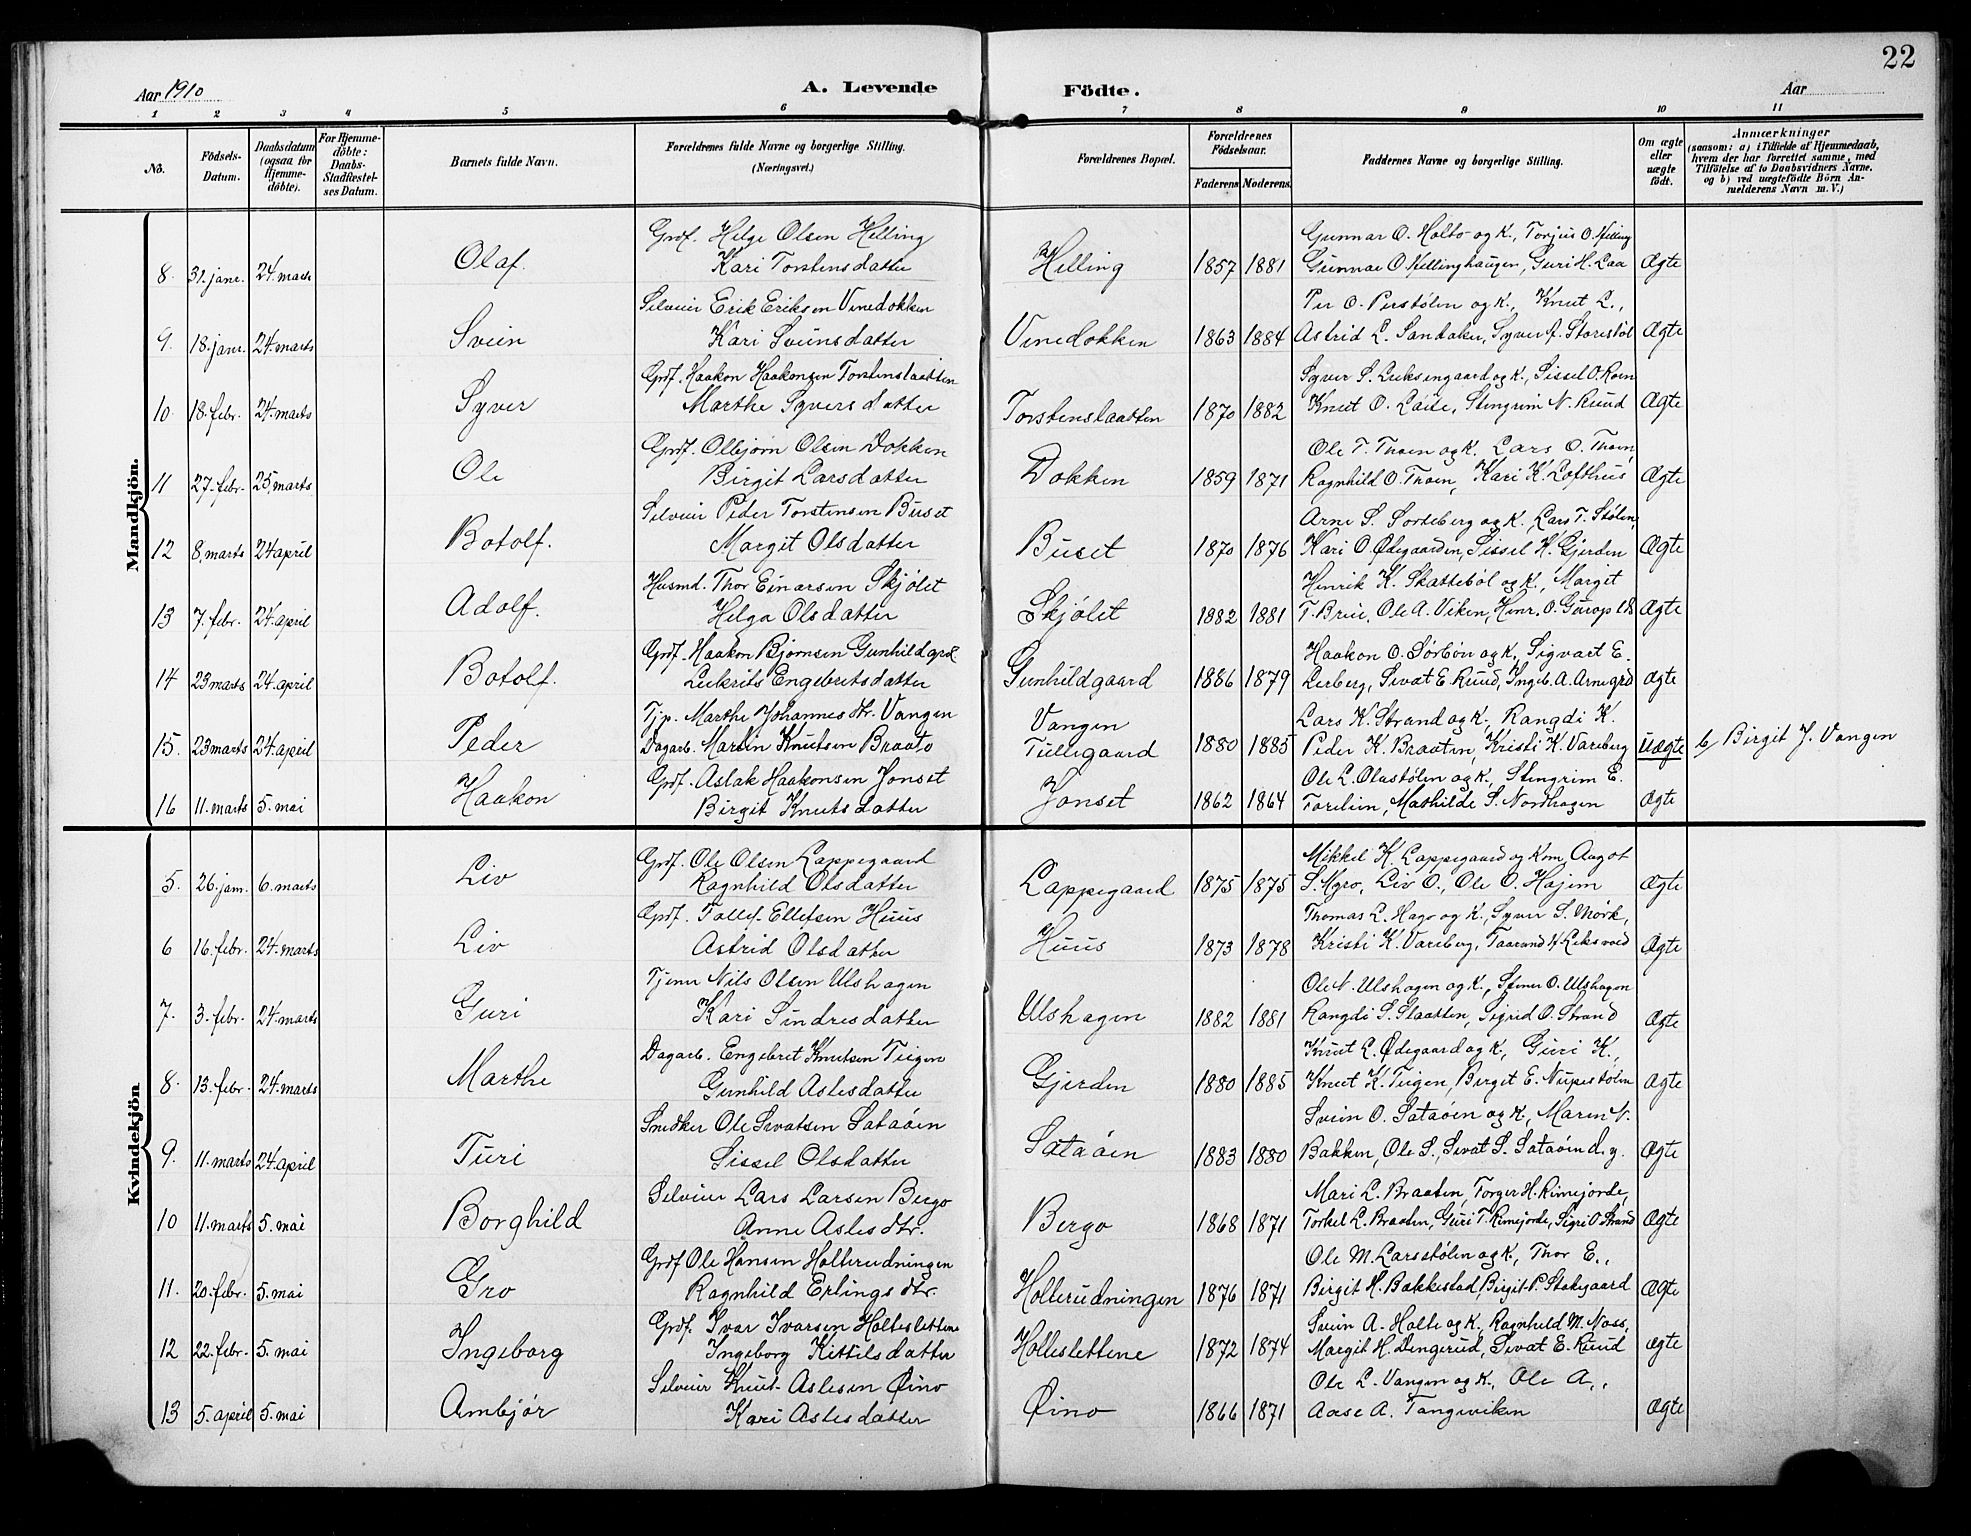 22
Aar 1910
A. Levende
Födte.
Aar
1 2 3 4 5 6 7 8 9 10 11
No.
Födsels-Datum.
Daabsdatum (ogsaa for Hjemmedöbte).
For Hjemmedöbte: Daabs-Stadfæstelses Datum.
Barnets fulde Navn.
Forældrenes fulde Navne og borgerlige Stilling. (Næringsvei.)
Forældrenes Bopæl.
Forældrenes Födselsaar.
Faderens Moderens.
Faddernes Navne og borgerlige Stilling.
Om ægte eller uægte födt.
Anmærkninger
(saasom: a) i Tilfælde af Hjemmedaab, hvem der har forrettet samme, med Tilföielse af to Daabsvidners Navne, og b) ved uægtefödte Börn Anmelderens Navn m. V.)
Mandkjön.
Grdf. Helge Olsen Helling Gunnar O. Holto og K., Torjus O. Helling
8. 31. janr. 24. marts Olaf. Kari Torstensdatter Helling 1857 1881 Gunnar O. Hellinghaugen, Guri H. Laa Ægte
Selveier Erik Eriksen Vinedokken Per O. Perstölen og K., Knut L.,
9. 18. janr. 24. marts Svein Kari Sveinsdatter Vinedokken 1863 1884 Astrid L. Sandaker, Syver A. Storestöl Ægte
Grdf. Haakon Haakonsen Torstenslaatten Syver S. Leksengaard og K., Sissel O. Roen
10. 18. febr. 24. marts Syver Marthe Syversdatter Torstenslaatten 1870 1882 Knut O. Låite, Stengrim N. Ruud Ægte
Grdf. Olbjørn Olsen Dokken Ole T. Thoen og K. Lars O. Thoen,
11 27. febr. 25. marts Ole Birgit Larsdatter Dokken 1859 1871 Ragnhild O. Thoen, Kari K. Lofthus Ægte
Selveier Peder Torstensen Buset Arne S. Sorteberg og K., Lars T. Stølen,
12 8. marts 24 april Botolf. Margit Olsdatter Buset 1870 1876 Kari O. Ødegaarden, Sissel H. Gjerden Ægte
Husmd. Thor Einarsen Skjölet Henrik K. Skattebøl og K., Margit
13 7. febr. 24. april Adolf. Helga Olsdatter Skjølet 1882 1881 T. Brue, Ole A. Viken, Henr. O. Ægte
Grdf. Haakon Bjørnsen Gunhildgrd Haakon O. Sørbøn og K., Sigvart E.
14 23 marts 24. april Botolf. Engebretsdatter Gunhildgaard 1886 1879 Lerberg, Sevat E. Ruud, Ingeb. A. Arnegrd Ægte
Tjp. Marthe Johannesdtr. Vangen Vangen Lars K. Strand og K., Rangdi K.
15. 23 marts 24. april Peder Dagarb. Martin Knutsen Braato Tullegaard 1880 1885 Peder K. Braaten, Kristi K. Vareberg Uægte b, Birgit J. Vangen
Grdf. Aslak Haakonsen Jonset Ole L. Olastølen og K., Stengrim E.
16 11. marts 5. mai Haakon Birgit Knutsdatter Jonset 1862 1864 Torelien, Mathilde S. Nordhagen Ægte
Kvindekjön
Grdf. Ole Olsen Lappegaard Mikkel K. Lappegaard og Kom, Aagot
5. 26. jan. 6. marts Liv Ragnhild Olsdatter Lappegaard 1875 1875 S. Myro, Liv O., Ole O. Hajem Ægte
Grdf. Tollef Ellefsen Huus Thomas L. Hago og K., Syver S. Mørk,
6 16. febr. 24. marts Liv Astrid Olsdatter Huus 1873 1878 Kristi K. Vareberg, Taarand Ægte
Tjener Nils Olsen Ulshagen Ole N. Ulshagen og K., Steiner O. Ulshagen
7. 3. febr. 24. marts Guri Kari Sindresdatter Ulshagen 1882 1881 Rangdi S. Slaatten, Sigrid O. Strand Ægte
Dagarb. Engebret Knutsen Teigen Knut L. Ødegaard og K., Guri K.,
8. 13. febr. 24. marts Marthe Gunhild Aslesdatter Gjerden 1880 1885 Knut K. Teigen, Birget E. Nupestølen Ægte
Snedker Ole Sevatsen Sataøen Svein O. Sataøen og K., Maren N.
9. 11. marts 24. april Turi Sissel Olsdatter Sataøen 1883 1880 Bakken, Ole S., Sevat S. Sataøen d. y. Ægte
Selveier Lars Larsen Bergo Mari L. Braaten, Torger H. Rimejorde,
10 11. marts 5. mai Borghild Anne Aslesdtr. Bergo 1868 1871 Torkel L. Braaten, Guri T. Rimejorde, Sigri O Strand Ægte
Grdf Ole Hansen Holterudningen Ole M. Larsstølen og K., Thor E.,
11. 20. febr. 5. mai Gro Ragnhild Erlingsdtr. Holterudningen 1876 1871 Birgit H. Bakkestad, Birgit P. Stakegaard Ægte
Grdf. Ivar Ivarsen Holteslettene Svein A. Holte og K. Ragnheld M. Noss,
12 22. febr. 5. mai Ingeborg Ingeborg Kittilsdatter Holleslettene 1872 1874 Margit H. Dengerud, Sevat E. Ruud Ægte
Selveier Knut Aslesen Øino Ole L. Vangen og K., Ole A.,
13 5. april 5. mai Ambjør Kari Aslesdatter Øino 1866 1871 Aase A. Tangeviken Ægte